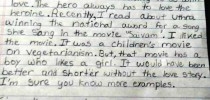 love. The hero always has to love the
heroine. Recently, I read about Uthra
winning the National award for a song
she sang in the movie "Saivam". I liked
the movie. It was a children's movie
on vegetarianism. But, that movie has a
boy who likes a girl. It would have been
better and shorter without the love story.
I'm sure you know more examples.